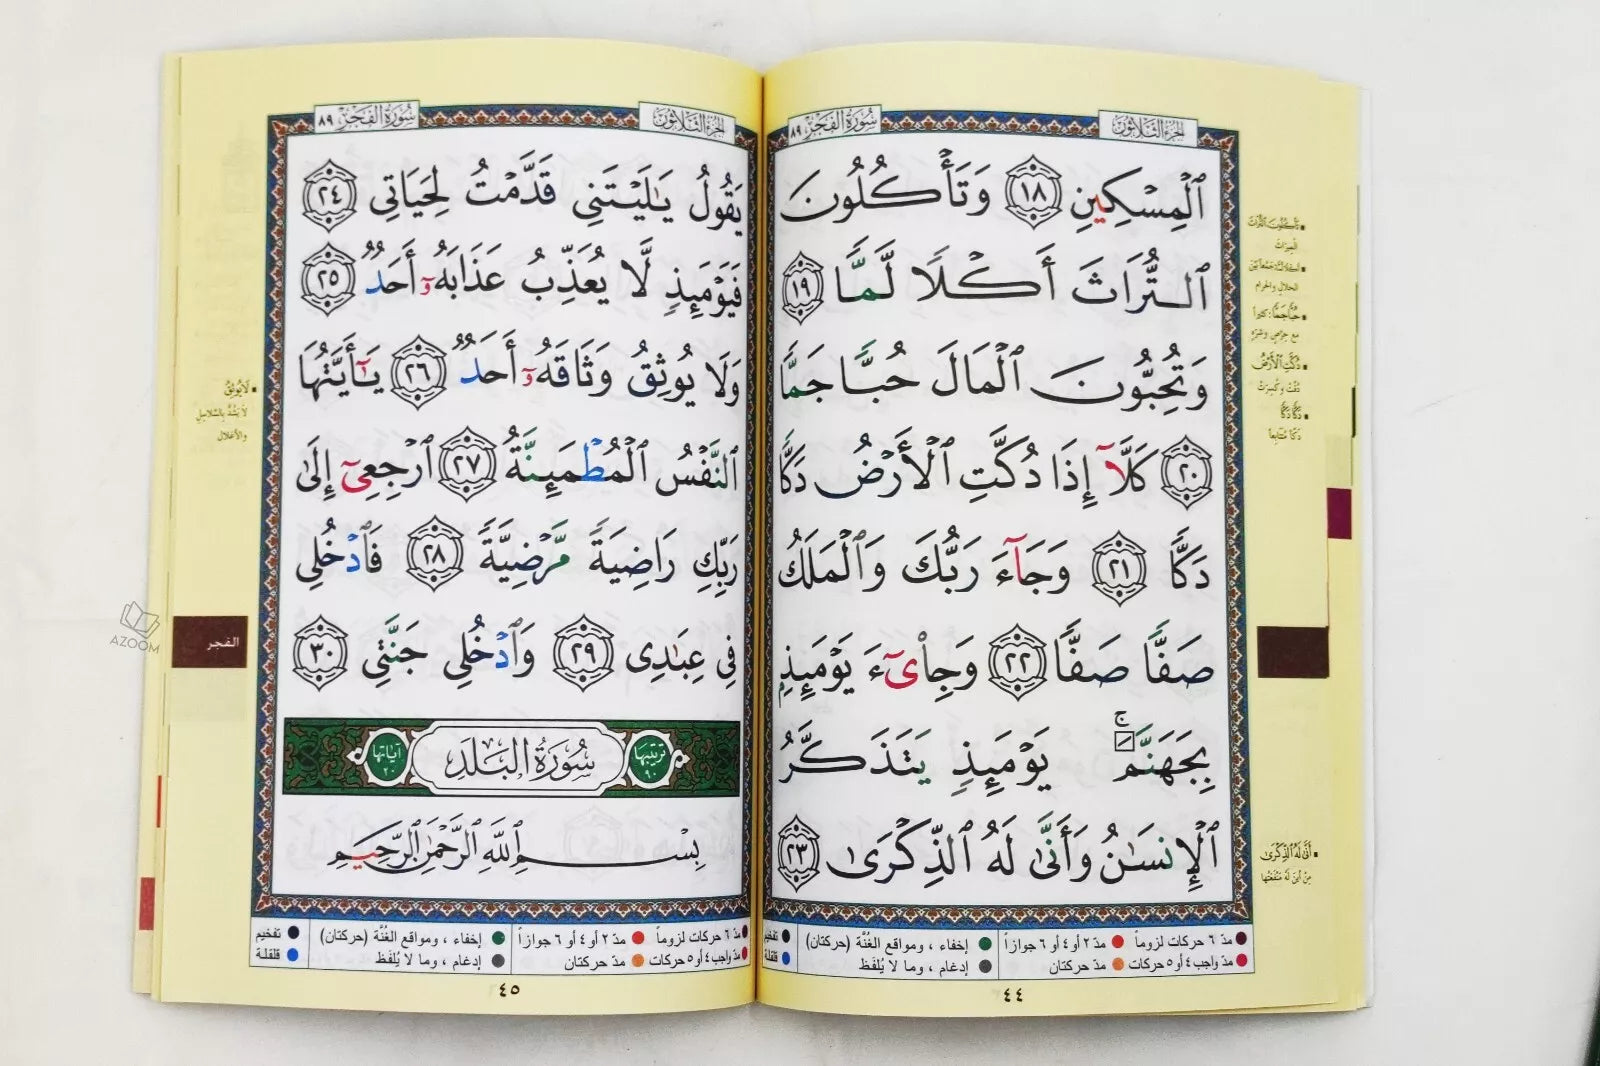 الجزء الثلاثون
سورة الفجر ٨٩
ٱلۡمِسۡكِينِ ١٨ وَتَأۡكُلُونَ
ٱلتُّرَاثَ أَكۡلًا لَّمًّا ١٩
وَتُحِبُّونَ ٱلۡمَالَ حُبًّا جَمًّا
٢٠ كَلَّآ إِذَا دُكَّتِ ٱلۡأَرۡضُ دَكًّا
دَكًّا ٢١ وَجَآءَ رَبُّكَ وَٱلۡمَلَكُ
صَفًّا صَفًّا ٢٢ وَجِاْيٓءَ يَوۡمَئِذِۭ
بِجَهَنَّمَۚ يَوۡمَئِذٍ يَتَذَكَّرُ
ٱلۡإِنسَٰنُ وَأَنَّىٰ لَهُ ٱلذِّكۡرَىٰ ٢٣
تَأْكُلُونَ التُّرَاثَ
الميراث
أكلاً لمًّا: جمعاً بين
الحلال والحرام
حُبًّا جَمًّا: كثيراً
مع حرص وشره
دُكَّتِ الأَرْضُ
دُقَّت وكُسِرَت
دَكًّا دَكًّا
دكًّا متتابعاً
أَنَّى لَهُ الذِّكْرَى
من أين له منفعتها
مدّ ٦ حركات لزوماً
مدّ ٢ أو ٤ أو ٦ جوازاً
إخفاء ، ومواقع الغُنَّة (حركتان)
تفخيم
مدّ واجب ٤ أو ٥ حركات
مدّ حركتان
إدغام ، وما لا يُلفَظ
قلقلة
٤٤
الجزء الثلاثون
سورة الفجر ٨٩
يَقُولُ يَٰلَيۡتَنِي قَدَّمۡتُ لِحَيَاتِي ٢٤
فَيَوۡمَئِذٍ لَّا يُعَذِّبُ عَذَابَهُۥٓ أَحَدٌ ٢٥
وَلَا يُوثِقُ وَثَاقَهُۥٓ أَحَدٌ ٢٦ يَٰٓأَيَّتُهَا
ٱلنَّفۡسُ ٱلۡمُطۡمَئِنَّةُ ٢٧ ٱرۡجِعِيٓ إِلَىٰ
رَبِّكِ رَاضِيَةً مَّرۡضِيَّةً ٢٨ فَٱدۡخُلِي
فِي عِبَٰدِي ٢٩ وَٱدۡخُلِي جَنَّتِي ٣٠
ترتيبها ٩٠
سورة البلد
آياتها ٢٠
بِسۡمِ ٱللَّهِ ٱلرَّحۡمَٰنِ ٱلرَّحِيمِ
لَا يُوثِقُ
لا يشدّ بالسلاسل
والأغلال
الفجر
AZOOM
مدّ ٦ حركات لزوماً
مدّ ٢ أو ٤ أو ٦ جوازاً
إخفاء ، ومواقع الغُنَّة (حركتان)
تفخيم
مدّ واجب ٤ أو ٥ حركات
مدّ حركتان
إدغام ، وما لا يُلفَظ
قلقلة
٤٥